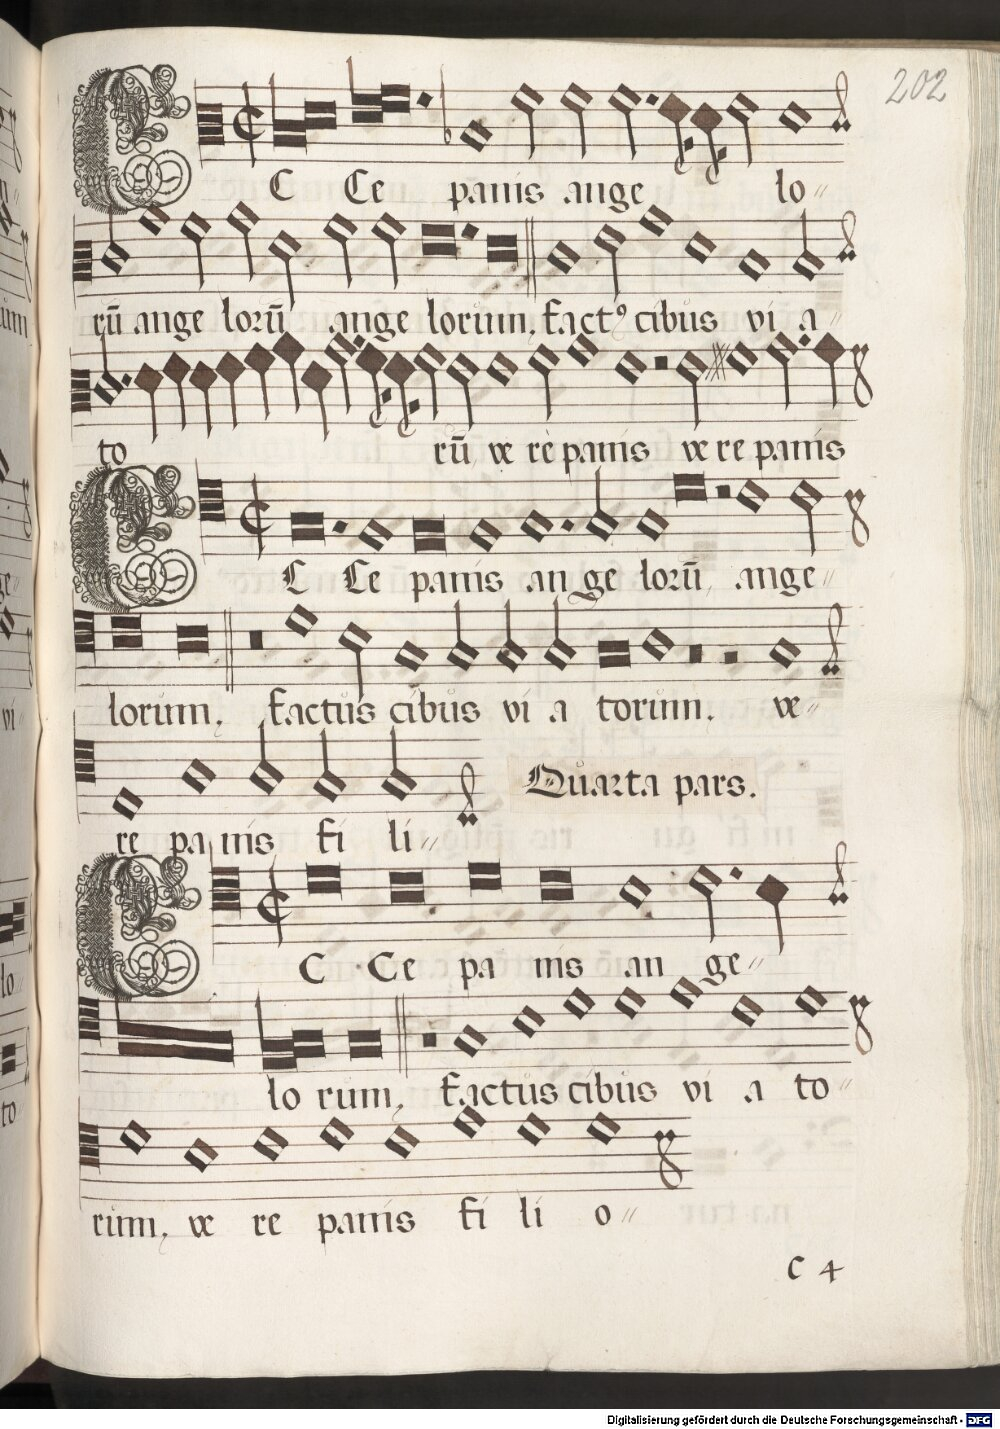 202
ECCe panis ange lo〃
rū ange lorū ange lorum, fact⁹ cibus vi a〃
to rū, ve re panis ve re panis
ECCe panis an ge lorū, ange〃
lorum, factus cibus vi a torum, ve〃
re panis fi li〃
Quarta pars.
ECCe pa nis an ge〃
lo rum, factus cibus vi a to〃
rum, ve re panis fi li o〃
C 4
Digitalisierung gefördert durch die Deutsche Forschungsgemeinschaft - DFG